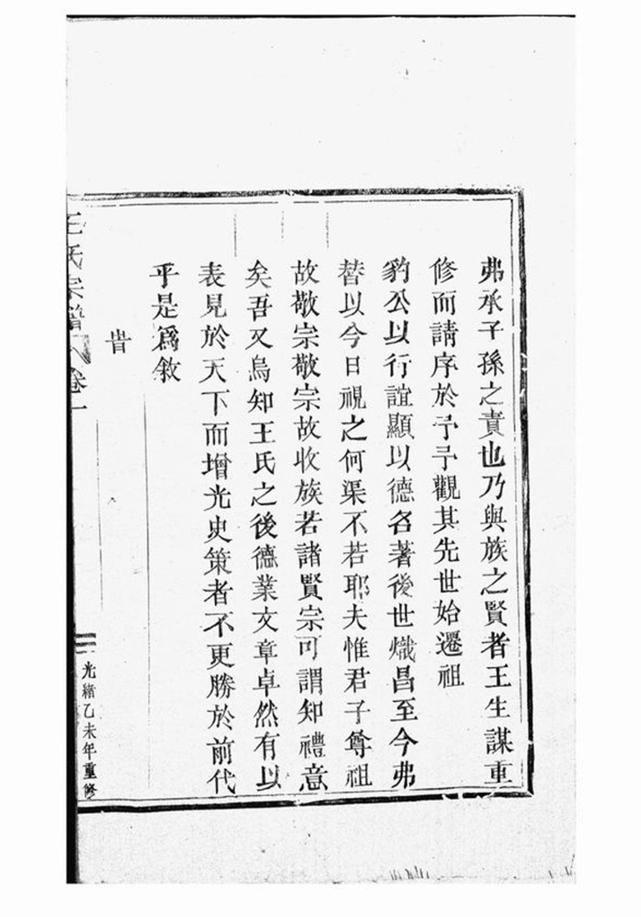 弗承子孫之責也乃與族之賢者王生謀重
修而請序於予予觀其先世始遷祖
豹公以行誼顯以德名著後世熾昌至今弗
替以今日視之何渠不若耶夫惟君子尊祖
故敬宗敬宗故收族若諸賢宗可謂知禮意
矣吾又烏知王氏之後德業文章卓然有以
表見於天下而增光史策者不更勝於前代
乎是爲敘
旹
王氏宗譜 卷一
光緒乙未年重修